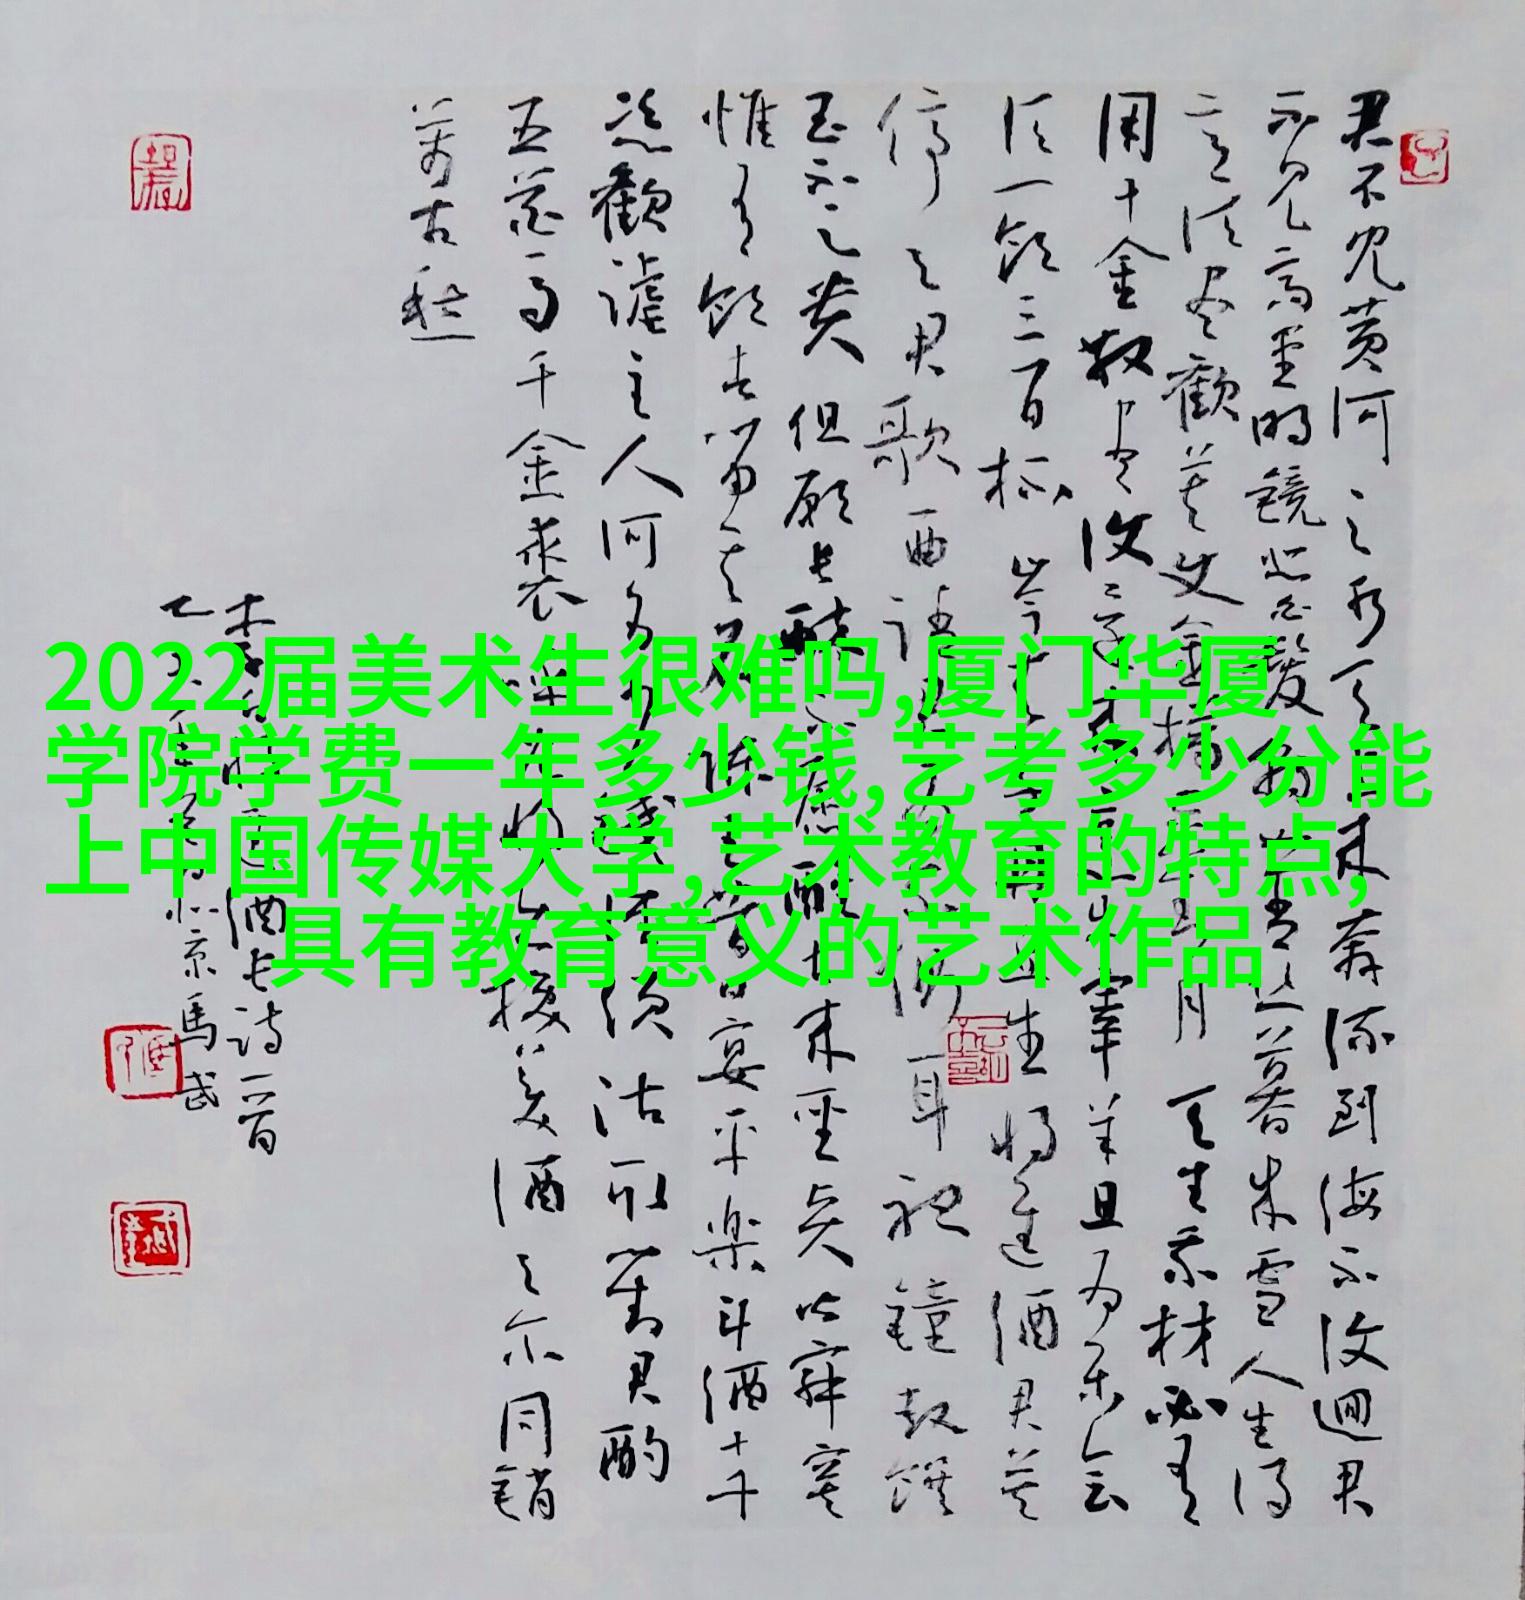 2022届美术生很难吗,厦门华厦
学院学费一年多少钱,艺考多少分能
上中国传媒大学,艺术教育的特点,
具有教育意义的艺术作品
君不见黄河之水天上来奔流到海不復迴君
不见高堂明镜悲白髮朝如青丝暮成雪人生得
意须尽歡莫使金樽空对月天生我材必有
用千金散尽復来宰羊且为乐会
须一饮三百杯岑夫子丹丘生将進酒君莫
停与君歌一曲请君为我倾耳聽鐘鼓馔
玉不足贵但願長醉不願醒古来聖贤皆寂寞
惟有饮者留其名陈王昔日宴平楽斗酒十千
恣歡謔主人何为言少錢径须沽取對君酌
五花马千金裘呼儿将出换美酒与尔同銷
萬古愁
李白将進酒長诗一首
北京馬武